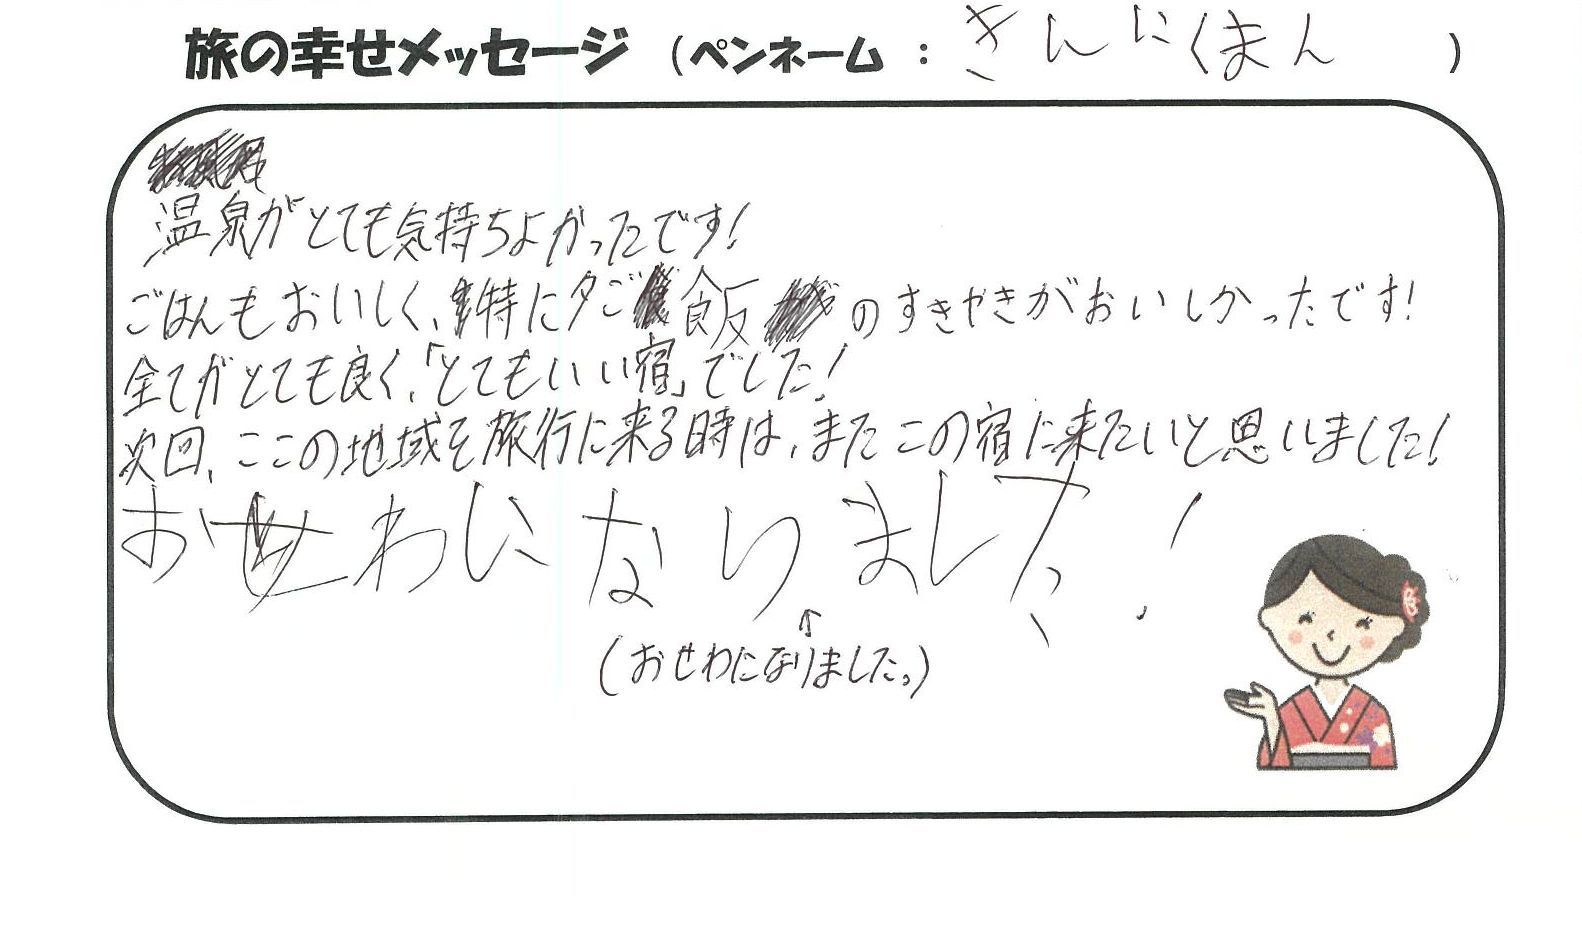 旅の幸せメッセージ (ペンネーム : きんにくまん )
温泉がとても気持ちよかったです!
ごはんもおいしく、特に夕ご飯のすきやきがおいしかったです!
全てがとても良く、「とてもいい宿」でした!
次回、ここの地域を旅行に来る時は、またこの宿に来たいと思いました!
おせわになりました!
↑
(おせわになりました。)